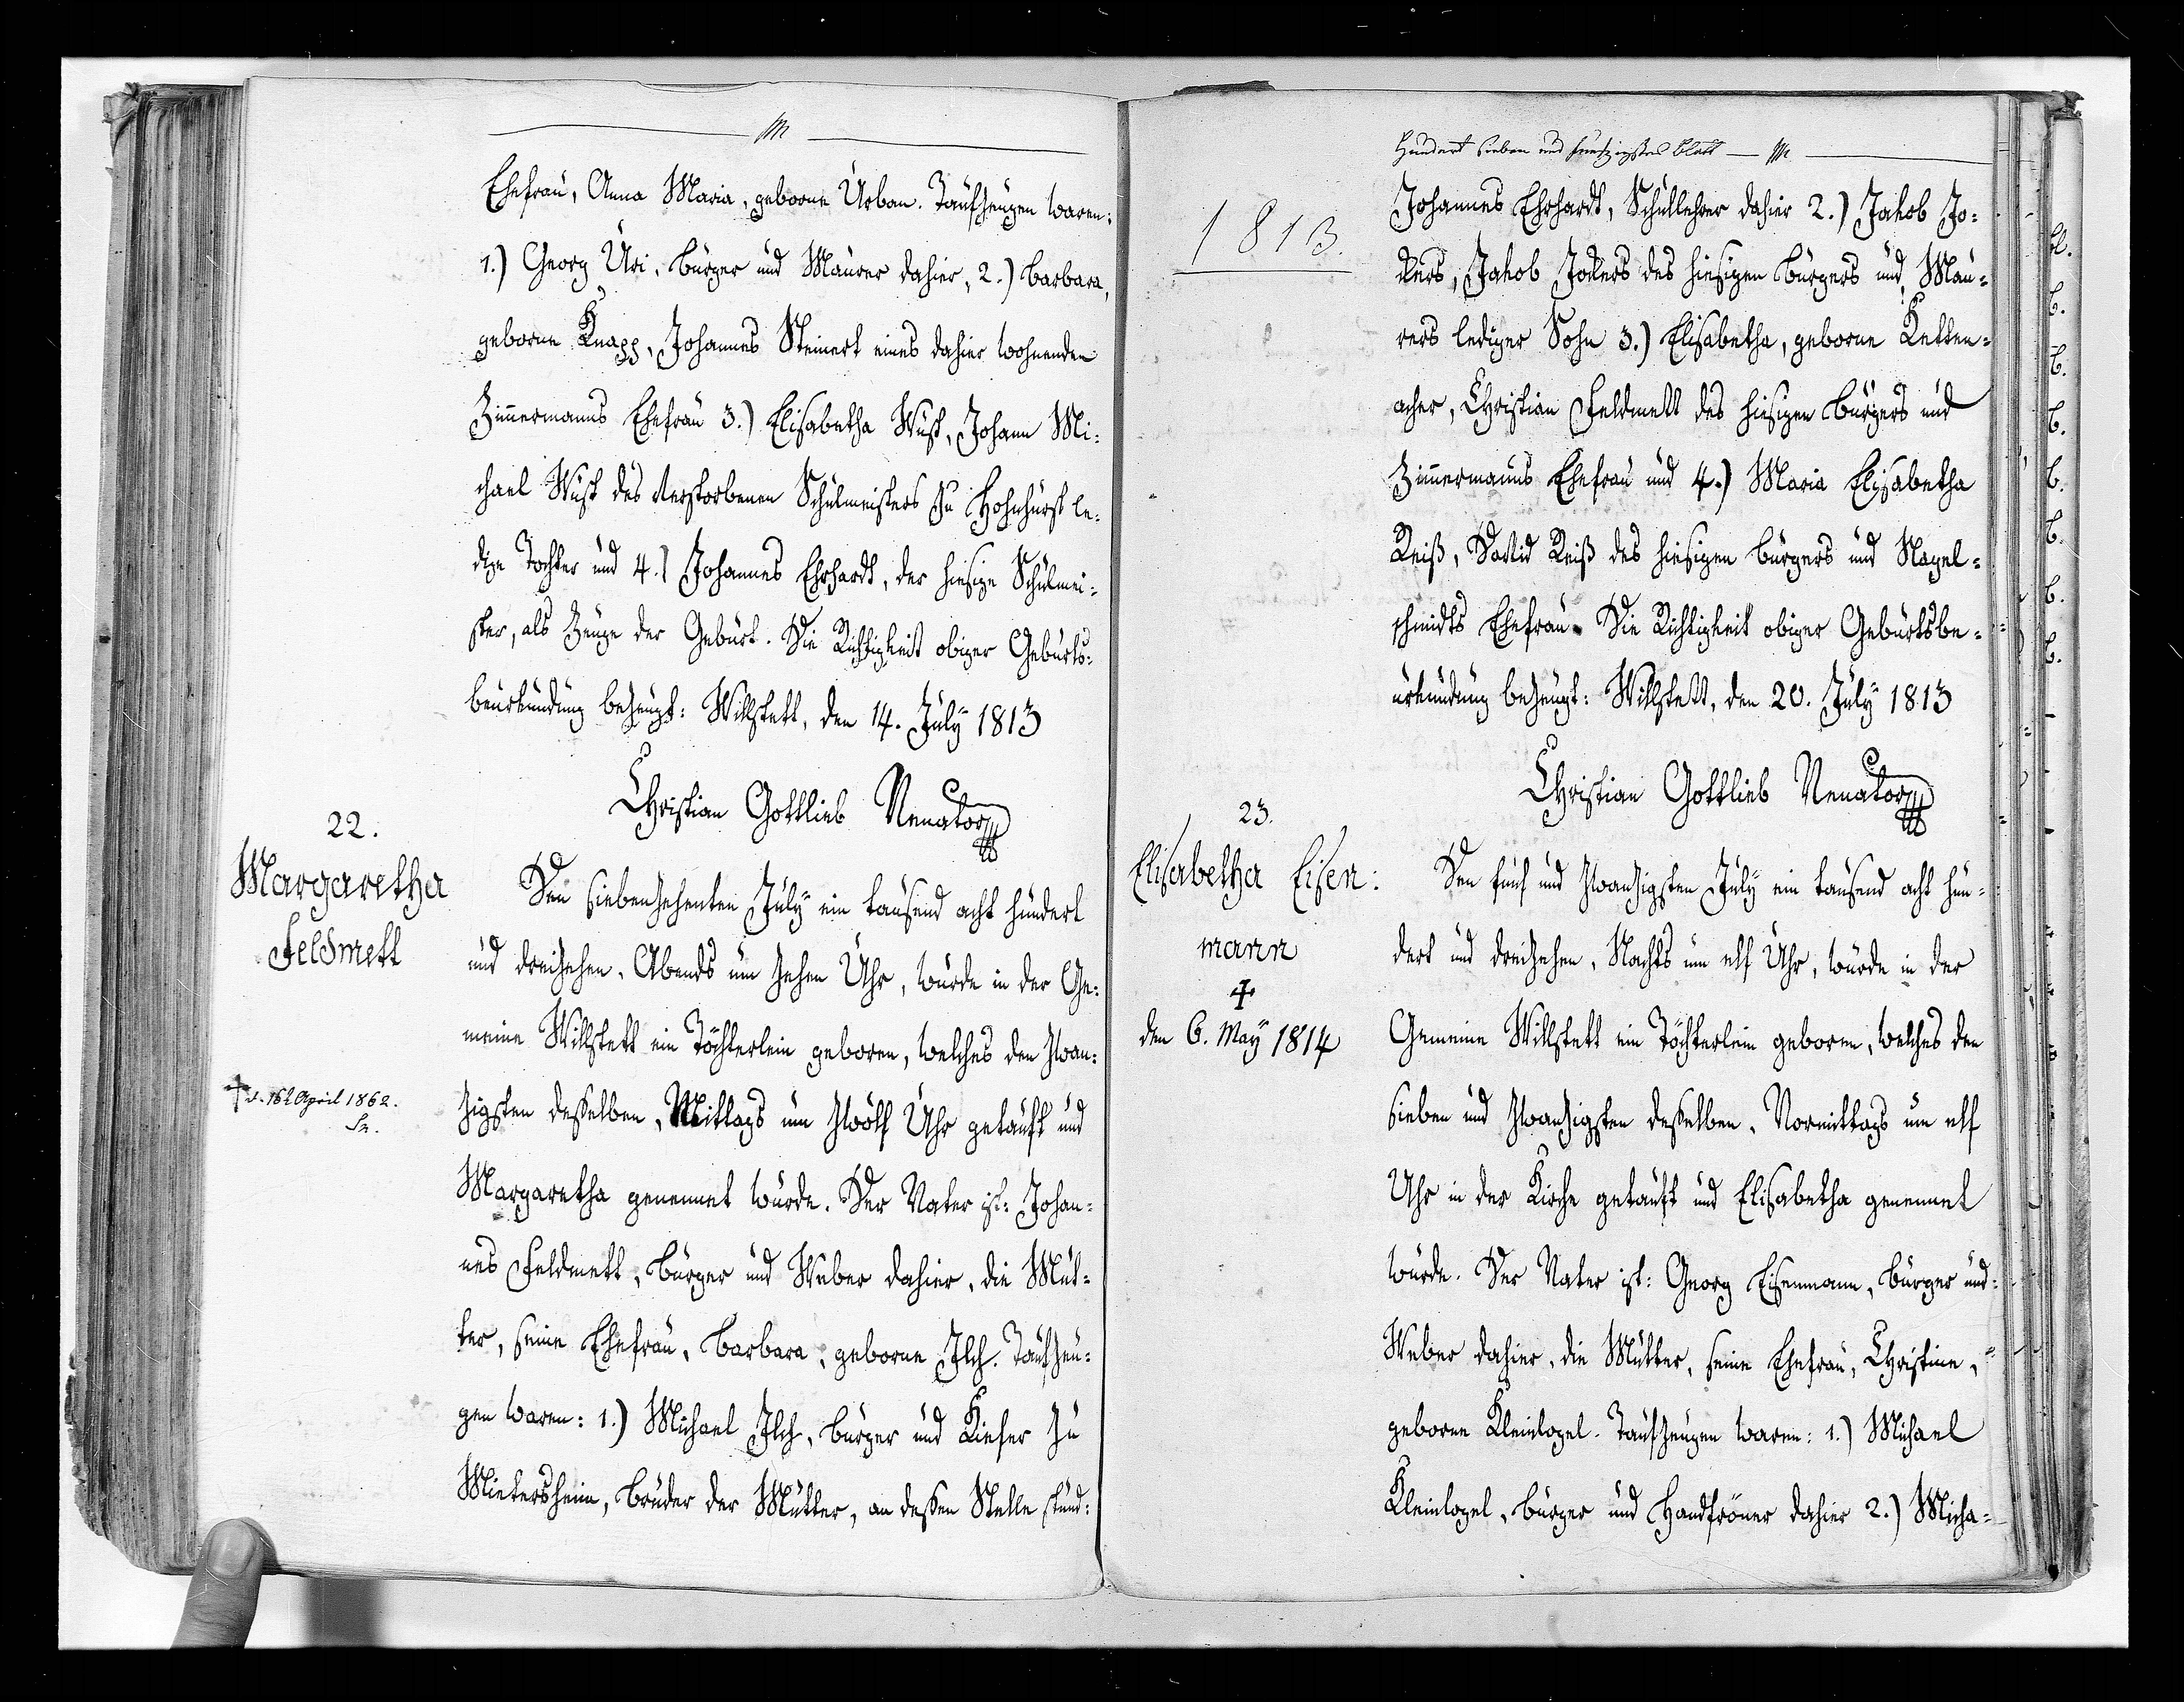 Ehefrau, Anna Maria, geborne Urban. Taufzeugen waren:
1.) Georg Uri, Bürger und Maurer dahier, 2.) Barbara,
geborne Knapp, Johannes Steinert eines dahier wohnenden
Zimmermanns Ehefrau 3.) Elisabetha Wüst, Johann Mi:
chael Wüst des verstorbenen Schulmeisters zu Hohnhurst le:
dige Tochter und 4.) Johannes Ehrhardt, der hiesige Schulmei:
ster, als Zeuge der Geburt. Die Richtigkeit obiger Geburts:
beurkundung bezeugt: Willstett, den 14. July 1813
Christian Gottlieb Venator
22.
Margaretha
Feldmett
† d. 16t April 1862.
Den siebenzehenten July ein tausend acht hundert
und dreizehen, Abends um zehen Uhr, wurde in der Ge:
meine Willstett ein Töchterlein geboren, welches den zwan:
zigsten desselben, Mittags um zwölf Uhr getauft und
Margaretha genennet wurde. Der Vater ist: Johan:
nes Feldmett, Bürger und Weber dahier, die Mut:
ter, seine Ehefrau, Barbara, geborne Ilch. Taufzeu:
gen waren: 1.) Michael Ilch, Bürger und Kiefer zu
Mietersheim, Bruder der Mutter, an dessen Stelle stund:
Hundert sieben und fünfzigstes Blatt
1813.
Johannes Ehrhardt, Schullehrer dahier 2.) Jakob Jo:
ckers, Jakob Jockers des hiesigen Bürgers und Mau:
rers lediger Sohn 3.) Elisabetha, geborne Ketten:
acher, Christian Feldmett des hiesigen Bürgers und
Zimmermanns Ehefrau und 4.) Maria Elisabetha
Reiß, David Reiß des hiesigen Bürgers und Nagel:
schmidts Ehefrau. Die Richtigkeit obiger Geburtsbe:
urkundung bezeugt: Willstett, den 20. July 1813
Christian Gottlieb Venator
23.
Elisabetha Eisen:
mann
†
den 6. May 1814
Den fünf und zwanzigsten July ein tausend acht hun:
dert und dreizehen, Nachts um elf Uhr, wurde in der
Gemeine Willstett ein Töchterlein geboren, welches den
sieben und zwanzigsten desselben, Vormittags um elf
Uhr in der Kirche getauft und Elisabetha genennet
wurde. Der Vater ist: Georg Eisenmann, Bürger und
Weber dahier, die Mutter, seine Ehefrau, Christine,
geborne Kleinlogel. Taufzeugen waren: 1.) Michael
Kleinlogel, Bürger und Handfröner dahier 2.) Micha: